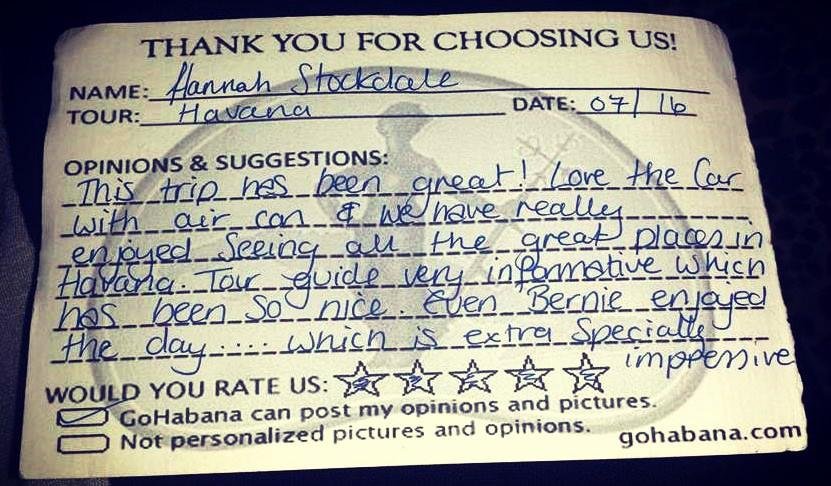 THANK YOU FOR CHOOSING US!
NAME: Hannah Stockdale
TOUR: Havana DATE: 07/16
OPINIONS & SUGGESTIONS:
This trip has been great! Love the Car
with air con & we have really
enjoyed Seeing all the great places in
Havana. Tour guide very informative which
has been so nice. Even Bernie enjoyed
the day.... which is extra Specially
imppensive
WOULD YOU RATE US:
GoHabana can post my opinions and pictures.
Not personalized pictures and opinions.
gohabana.com